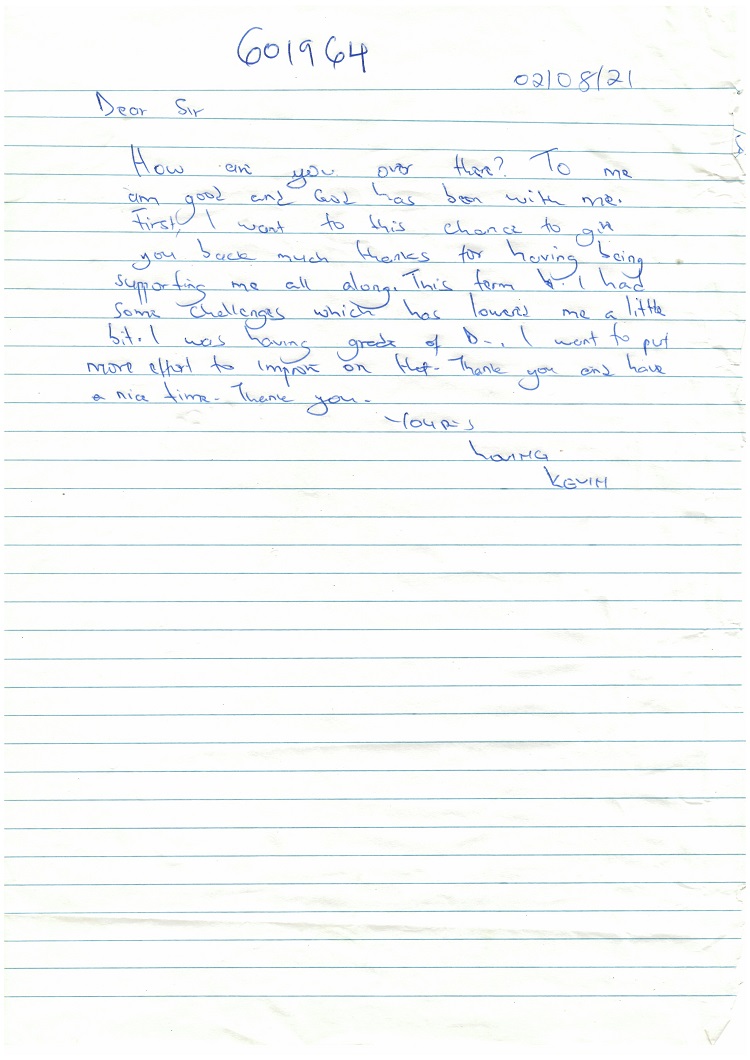 601964
02/08/21
Dear Sir
How are you over there? To me
am good and God has been with me.
First, I want to this chance to give
you back much thanks for having being
supporting me all along. This term I had
some challenges which has lowered me a little
bit. I was having grade of D-. I want to put
more effort to improve on that. Thank you and have
a nice time. Thank you.
YOURS
LOVING
KEVIN